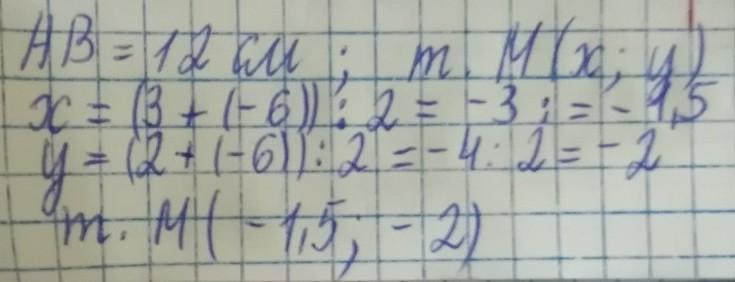 AB = 12 см ; т. М (x; y)
x = (3 + (-6)) : 2 = -3 : = -1,5
y = (2 + (-6)) : 2 = -4 : 2 = -2
т. М ( -1,5 ; -2)